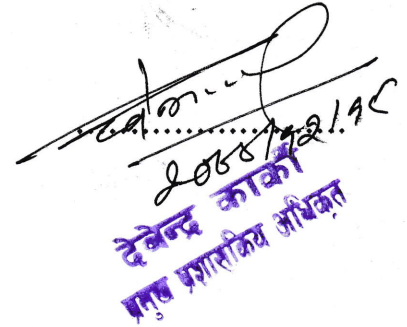 २०७७/१२/१८
देवेन्द्र कार्की
प्रमुख प्रशासकिय अधिकृत